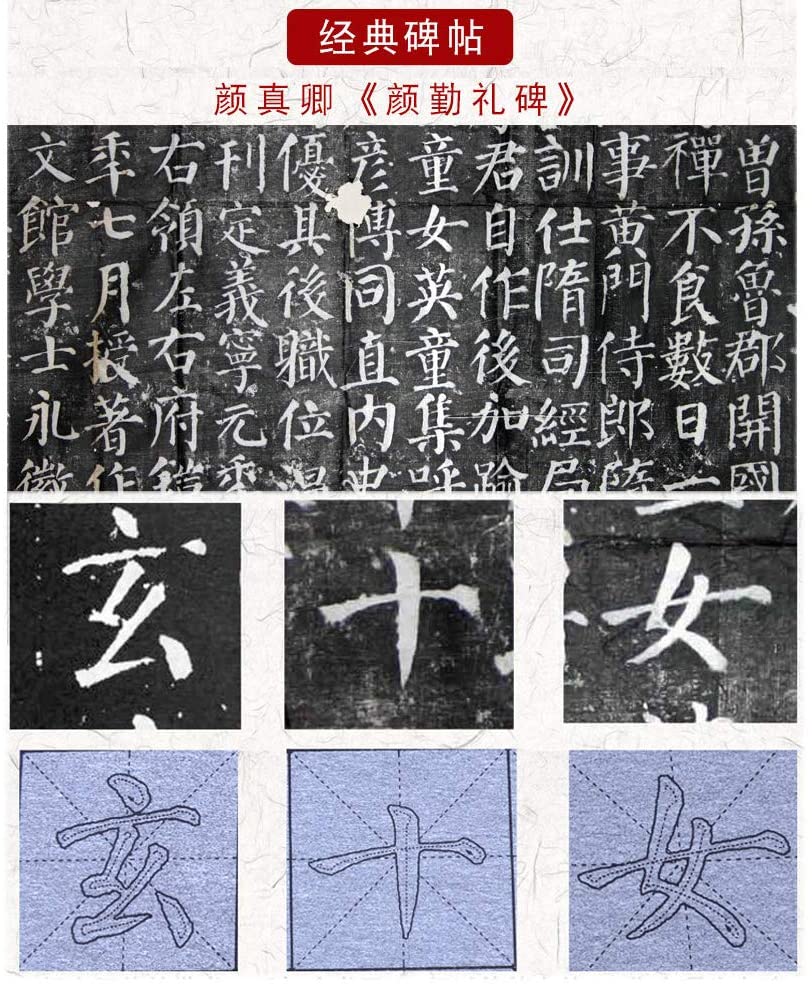 经典碑帖
颜真卿《颜勤礼碑》
曾孫魯郡開國
禪不食數日一
事黃門侍郎隋
訓仕隋司經局
君自作後加踰
童女英童集呼
彥博同直內史
優其後職位温
刊定義寧元年
右領左右府鎧
年七月授著作
文館學士永徽
玄 十 女
玄 十 女